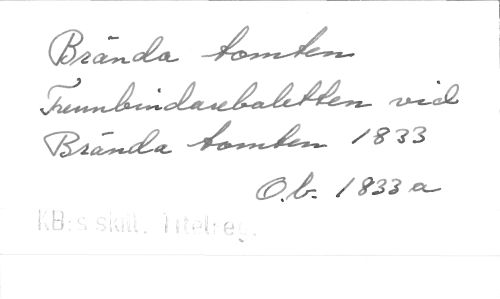 Brända tomten
Tunnbindarebaletten vid
Brända tomten 1833
O.b. 1833 a
KB:s skill. Titelreg.